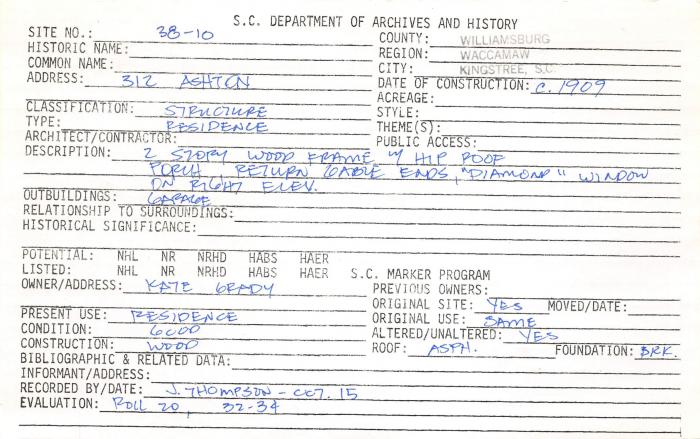 S.C. DEPARTMENT OF ARCHIVES AND HISTORY
SITE NO.: 38-10
COUNTY: WILLIAMSBURG
HISTORIC NAME:
REGION: WACCAMAW
COMMON NAME:
CITY: KINGSTREE, S.C.
ADDRESS: 312 ASHTON
DATE OF CONSTRUCTION: c. 1909
ACREAGE:
CLASSIFICATION: STRUCTURE
STYLE:
TYPE: RESIDENCE
THEME(S):
ARCHITECT/CONTRACTOR:
PUBLIC ACCESS:
DESCRIPTION: 2 STORY WOOD FRAME W/ HIP ROOF
PORCH, RETURN GABLE ENDS, "DIAMOND" WINDOW
ON RIGHT ELEV.
OUTBUILDINGS: GARAGE
RELATIONSHIP TO SURROUNDINGS:
HISTORICAL SIGNIFICANCE:
POTENTIAL: NHL NR NRHD HABS HAER
LISTED: NHL NR NRHD HABS HAER S.C. MARKER PROGRAM
OWNER/ADDRESS: KATE GRADY
PREVIOUS OWNERS:
ORIGINAL SITE: YES MOVED/DATE:
PRESENT USE: RESIDENCE
ORIGINAL USE: SAME
CONDITION: GOOD
ALTERED/UNALTERED: YES
CONSTRUCTION: WOOD
ROOF: ASPH. FOUNDATION: BRK.
BIBLIOGRAPHIC & RELATED DATA:
INFORMANT/ADDRESS:
RECORDED BY/DATE: J. THOMPSON - OCT. 15
EVALUATION: ROLL 20, 32-34